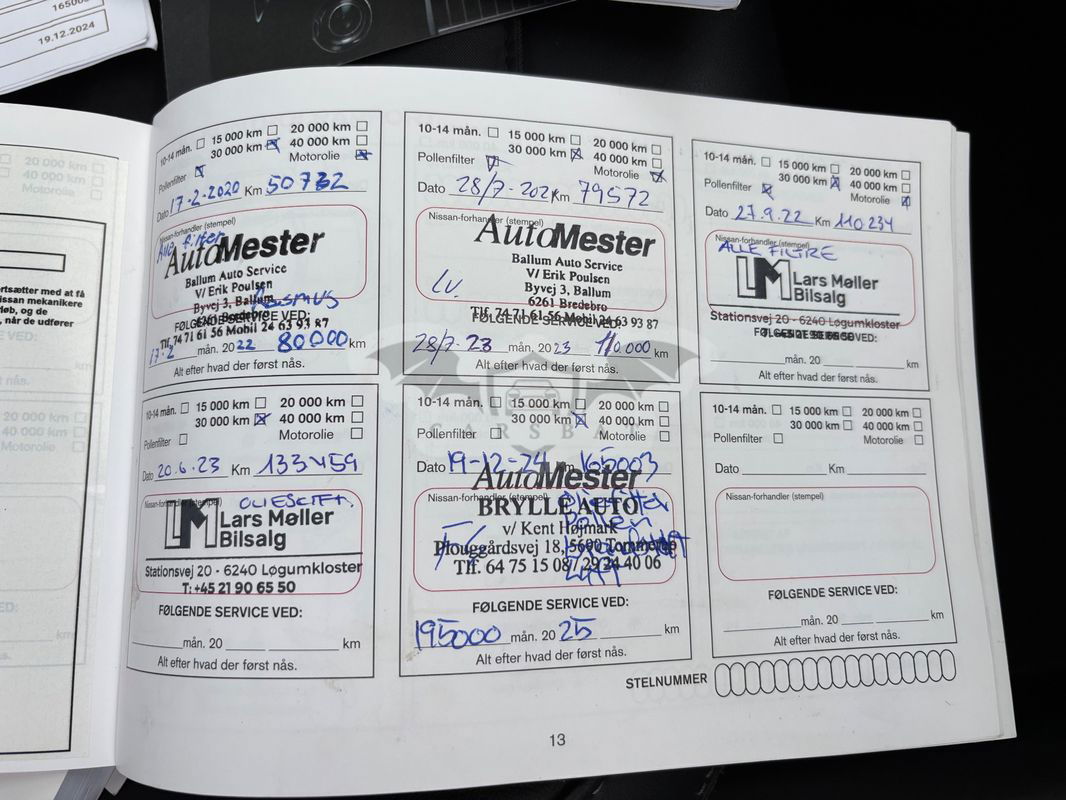 19.12.2024
10-14 mån. 15 000 km 20 000 km
30 000 km 40 000 km
Pollenfilter Motorolie
Dato 17-2-2020 Km 50732
Nissan-forhandler (stempel)
AutoMester
Ballum Auto Service
V/ Erik Poulsen
Byvej 3, Ballum
6261 Bredebro
Tlf. 74 71 61 56 Mobil 24 63 93 87
FØLGENDE SERVICE VED:
17-2 mån. 20 22 80000 km
Alt efter hvad der først nås.
10-14 mån. 15 000 km 20 000 km
30 000 km 40 000 km
Pollenfilter Motorolie
Dato 28/7-2021 Km 79572
Nissan-forhandler (stempel)
AutoMester
Ballum Auto Service
V/ Erik Poulsen
Byvej 3, Ballum
6261 Bredebro
Tlf. 74 71 61 56 Mobil 24 63 93 87
FØLGENDE SERVICE VED:
28/7-23 mån. 20 23 110.000 km
Alt efter hvad der først nås.
10-14 mån. 15 000 km 20 000 km
30 000 km 40 000 km
Pollenfilter Motorolie
Dato 27.9.22 Km 110234
Nissan-forhandler (stempel)
ALLE FILTRE
LM Lars Møller
Bilsalg
Stationsvej 20 - 6240 Løgumkloster
FØLGENDE SERVICE VED:
mån. 20 km
Alt efter hvad der først nås.
10-14 mån. 15 000 km 20 000 km
30 000 km 40 000 km
Pollenfilter Motorolie
Dato 20.6.23 Km 133459
Nissan-forhandler (stempel)
OLIESKIFT.
LM Lars Møller
Bilsalg
Stationsvej 20 - 6240 Løgumkloster
T: +45 21 90 65 50
FØLGENDE SERVICE VED:
mån. 20 km
Alt efter hvad der først nås.
10-14 mån. 15 000 km 20 000 km
30 000 km 40 000 km
Pollenfilter Motorolie
CARSBAT
Dato 19-12-24 Km 165003
AutoMester
Nissan-forhandler (stempel)
BRYLLE AUTO
v/ Kent Højmark
Plouggårdsvej 18, 5690 Tommerup
Tlf. 64 75 15 08 / 29 24 40 06
FØLGENDE SERVICE VED:
195000 mån. 20 25 km
Alt efter hvad der først nås.
10-14 mån. 15 000 km 20 000 km
30 000 km 40 000 km
Pollenfilter Motorolie
Dato Km
Nissan-forhandler (stempel)
FØLGENDE SERVICE VED:
mån. 20 km
Alt efter hvad der først nås.
STELNUMMER
13